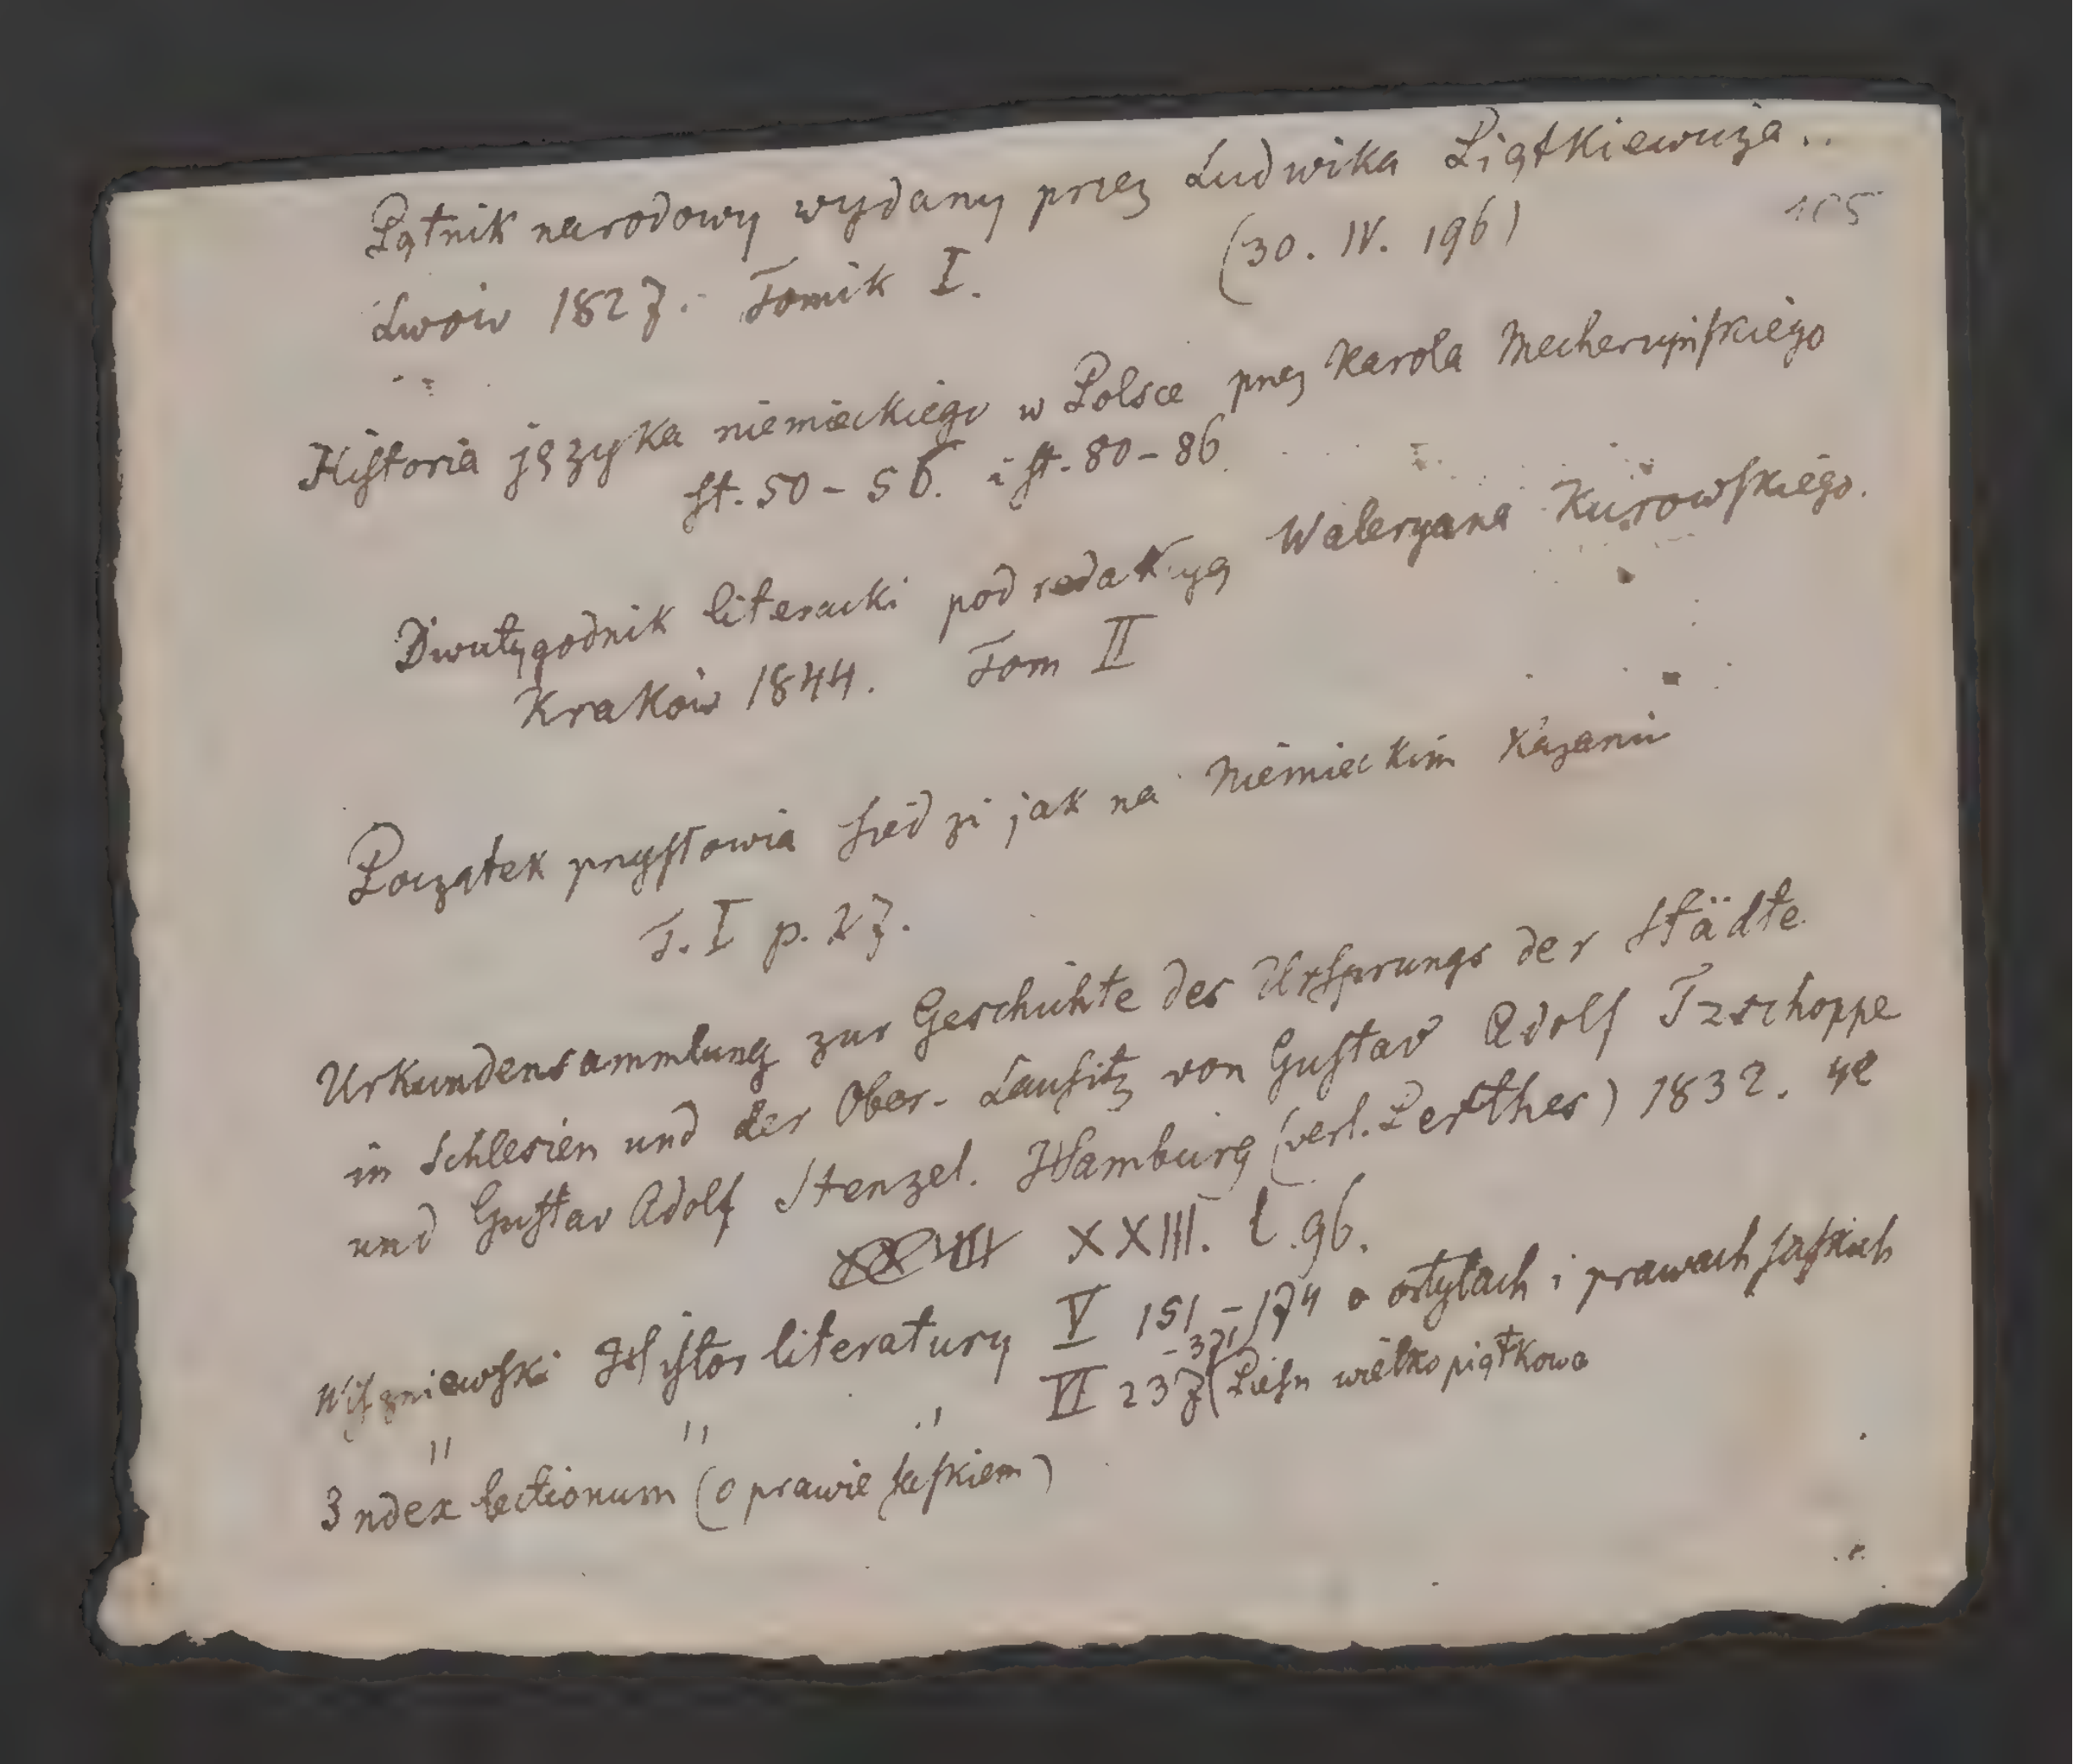 Pątnik narodowy wydany przez Ludwika Piątkiewicza..
105
Lwów 1827. Tomik I. (30. IV. 196)
Historia języka niemieckiego w Polsce przez Karola Mecherzyńskiego
st. 50 - 56. i st. 80 - 86.
Dwutygodnik literacki pod redakcyą Waleryana Kurowskiego.
Kraków 1844. Tom II
Początek przysłowia siedzi jak na Niemieckim Kazaniu
T. I p. 27.
Urkundensammlung zur Geschichte des Ursprungs der Städte
in Schlesien und der Ober-Lausitz von Gustav Adolf Tzschoppe
und Gustav Adolf Stenzel. Hamburg (verl. Perthes) 1832. 4e
XXIII. l. 96.
Wiszniewski Histor literatury V 151 - 174 o ortylach i prawach saskich
" " " VI 237 - 371 (Pieśń wielkopiątkowa
Index lectionum (o prawie saskiem)